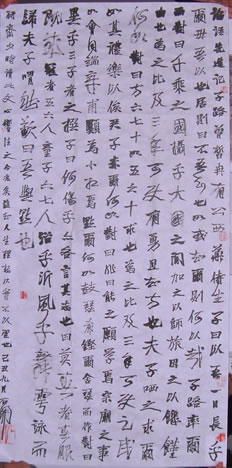 論語先進記子路曾皙冉有公西華侍坐子曰以吾一日長乎
爾毋吾以也居則曰不吾知也如或知爾則何以哉子路率爾
而對曰千乘之國攝乎大國之間加之以師旅因之以饑饉
由也為之比及三年可使有勇且知方也夫子哂之求爾
何如對曰方六七十如五六十求也為之比及三年可使足民
如其禮樂以俟君子赤爾何如對曰非曰能之願學焉宗廟之事
如會同端章甫願為小相焉點爾何如鼓瑟希鏗爾舍瑟而作對曰
異乎三子者之撰子曰何傷乎亦各言其志也曰莫春者春服
既成冠者五六人童子六七人浴乎沂風乎舞雩詠而
歸夫子喟然歎曰吾與點也
人生理 也己丑九月